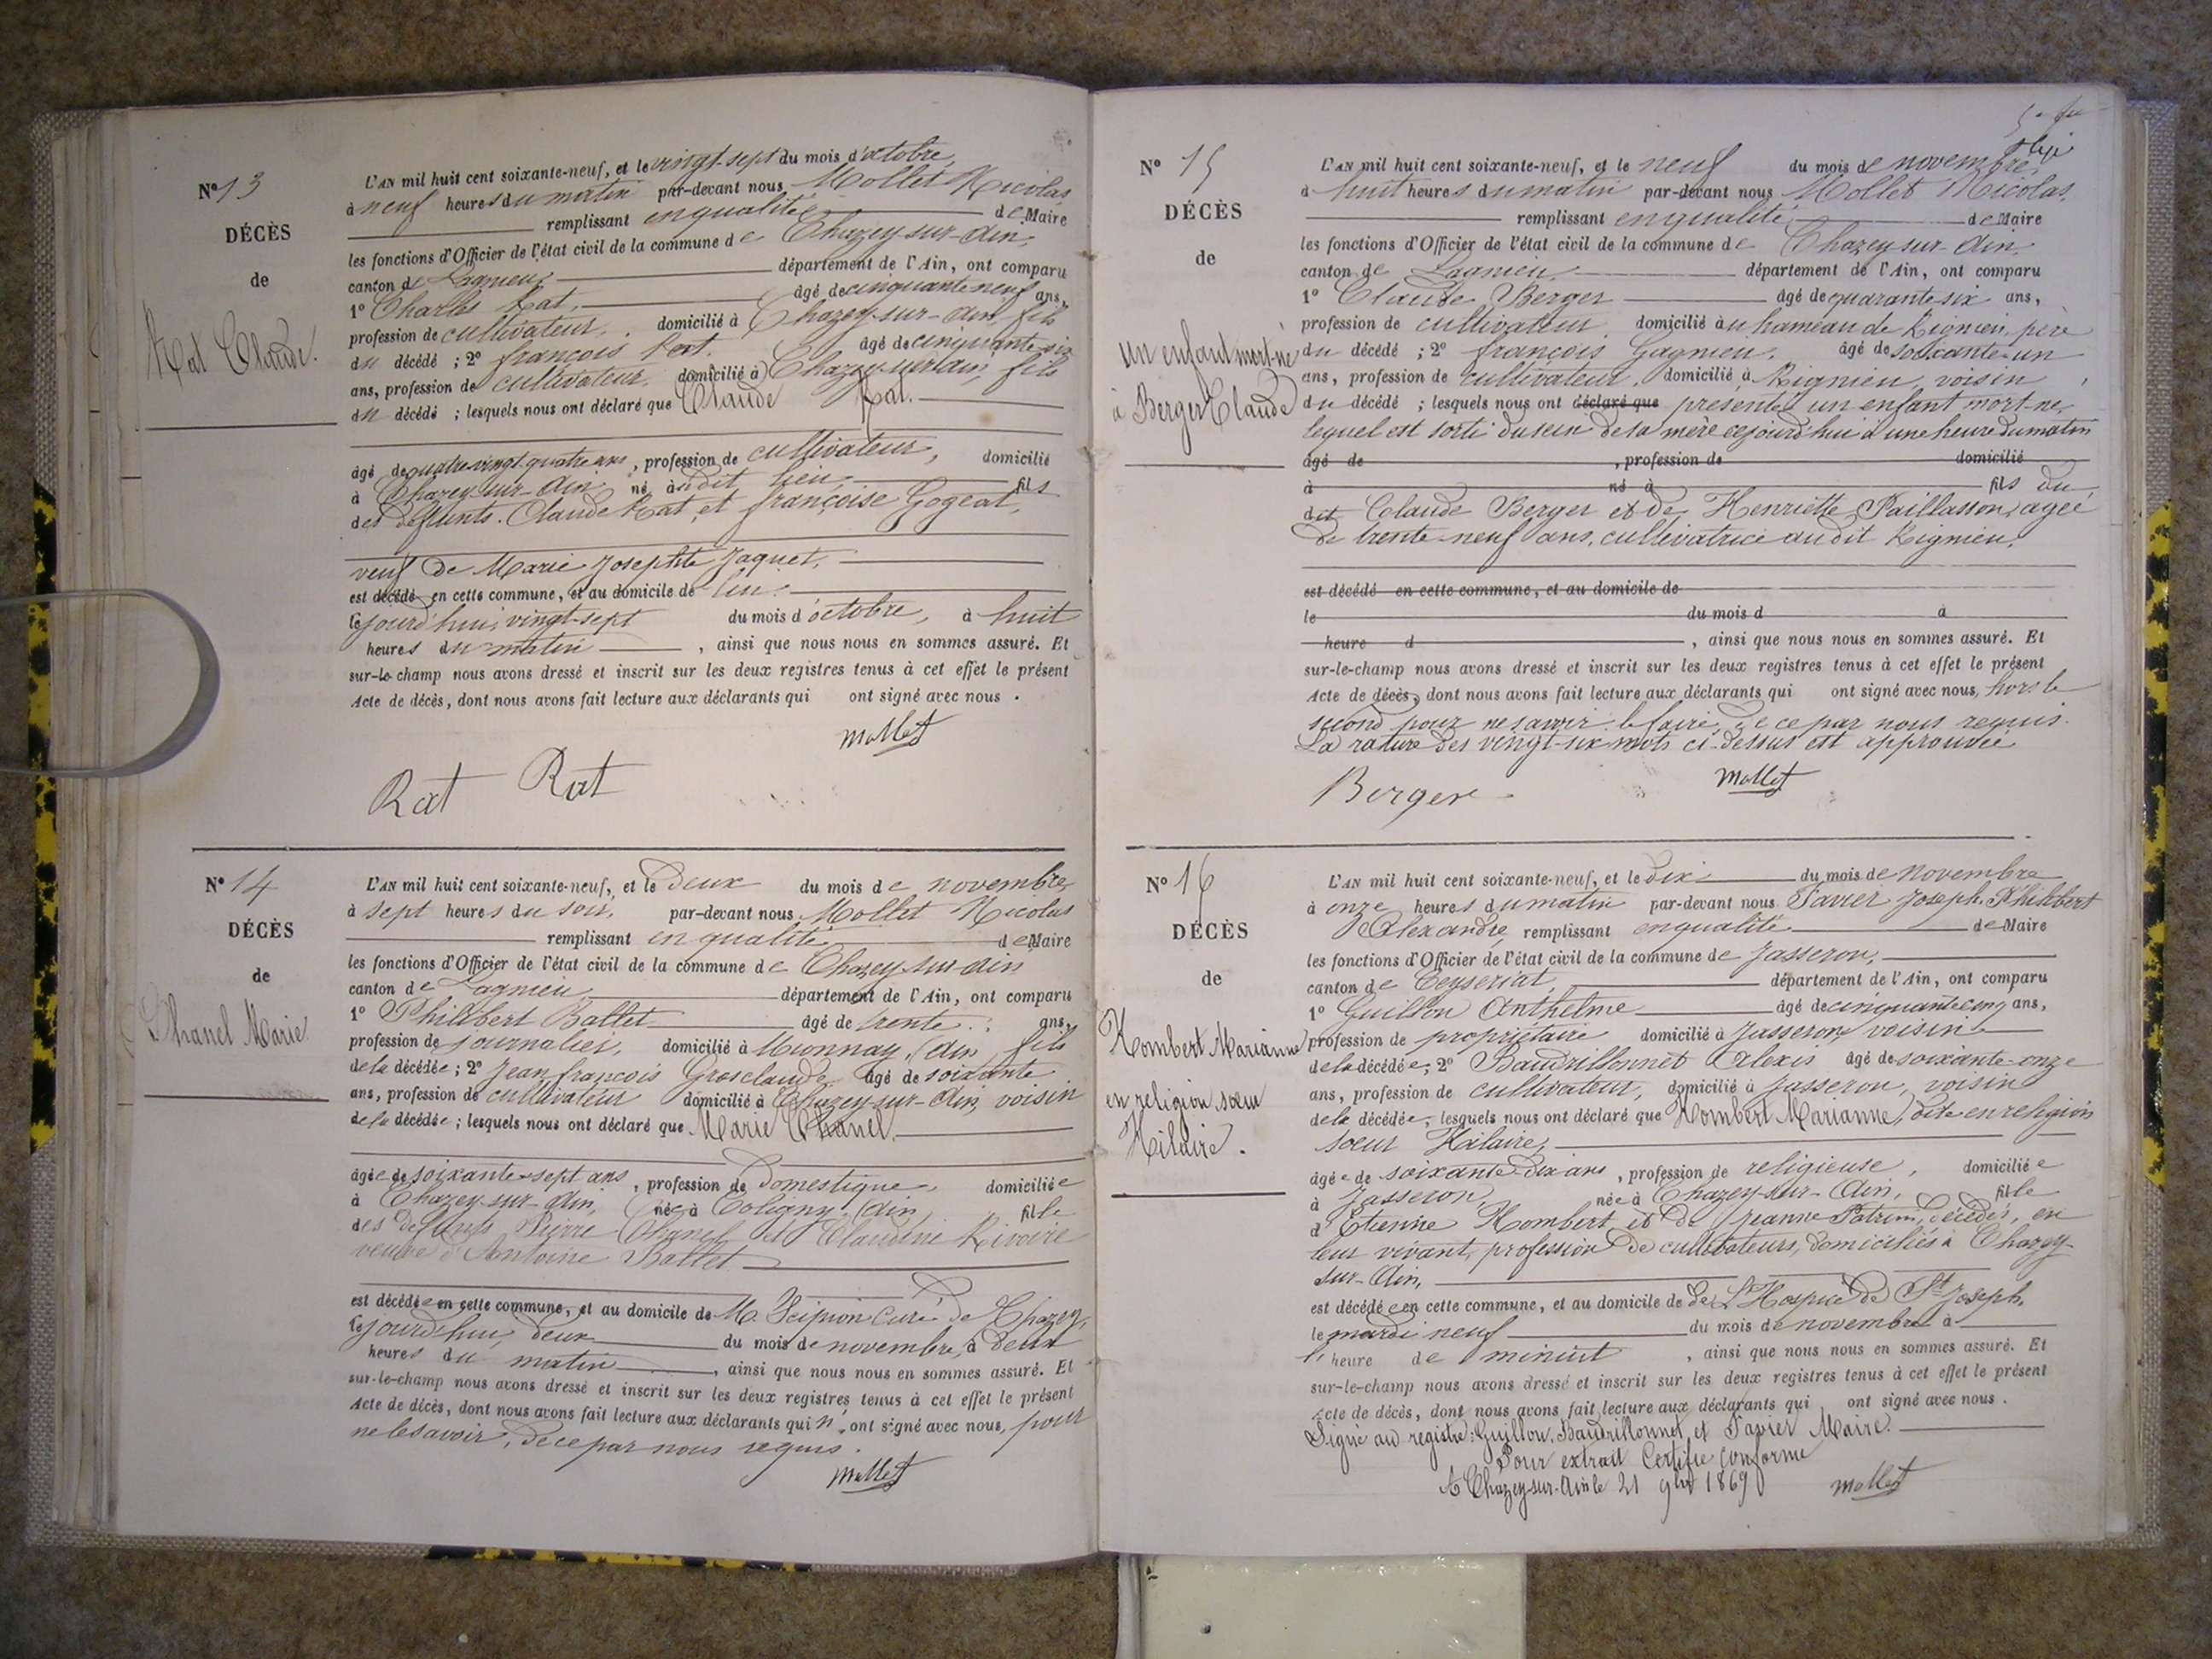 N° 13
DÉCÈS
de
Rat Claude.
L'AN mil huit cent soixante-neuf, et le vingt-sept du mois d'octobre,
à neuf heures du matin par-devant nous Mollet Nicolas
remplissant en qualité de Maire
les fonctions d'Officier de l'état civil de la commune de Chazey-sur-Ain,
canton de Lagnieu, département de l'Ain, ont comparu
1° Charles Rat, âgé de cinquante neuf ans,
profession de cultivateur, domicilié à Chazey-sur-Ain, fils
du décédé ; 2° françois Rat. âgé de cinquante six
ans, profession de cultivateur, domicilié à Chazey-sur-ain, fils
du décédé ; lesquels nous ont déclaré que Claude Rat.
âgé de quatre vingt quatre ans, profession de cultivateur, domicilié
à Chazey-sur-Ain, né audit lieu, fils
des défunts Claude Rat et françoise Gogeat,
veuf de Marie Josephte Jaquet,
est décédé en cette commune, et au domicile de lui
cejourd'hui, vingt-sept du mois d'octobre, à huit
heures du matin, ainsi que nous nous en sommes assuré. Et
sur-le-champ nous avons dressé et inscrit sur les deux registres tenus à cet effet le présent
Acte de décès, dont nous avons fait lecture aux déclarants qui ont signé avec nous.
Mollet
Rat Rat
N° 14
DÉCÈS
de
Chanel Marie
L'AN mil huit cent soixante-neuf, et le deux du mois de novembre
à sept heures du soir, par-devant nous Mollet Nicolas
remplissant en qualité de Maire
les fonctions d'Officier de l'état civil de la commune de Chazey-sur-ain
canton de Lagnieu département de l'Ain, ont comparu
1° Philibert Ballet âgé de trente ans,
profession de journalier, domicilié à Mionnay (Ain, fils
de la décédée ; 2° Jean françois Grosclaude âgé de soixante
ans, profession de cultivateur domicilié à Chazey-sur-Ain, voisin
de la décédée ; lesquels nous ont déclaré que Marie Chanel,
âgée de soixante-sept ans, profession de domestique, domiciliée
à Chazey-sur-Ain, née à Coligny (Ain fille
des défunts Pierre Chanel et Claudine Rivoire
veuve d'Antoine Ballet
est décédée en cette commune, et au domicile de M. curé de Chazey,
cejourd'hui deux du mois de novembre, à deux
heures du matin, ainsi que nous nous en sommes assuré. Et
sur-le-champ nous avons dressé et inscrit sur les deux registres tenus à cet effet le présent
Acte de décès, dont nous avons fait lecture aux déclarants qui n'ont signé avec nous, pour
ne le savoir, de ce par nous requis.
Mollet
N° 15
DÉCÈS
de
un enfant mort-né
à Berger Claude
L'AN mil huit cent soixante-neuf, et le neuf du mois de novembre,
à huit heures du matin par-devant nous Mollet Nicolas,
remplissant en qualité de Maire
les fonctions d'Officier de l'état civil de la commune de Chazey-sur-Ain,
canton de Lagnieu, département de l'Ain, ont comparu
1° Claude Berger âgé de quarante-six ans,
profession de cultivateur domicilié au hameau de Rignieu, père
du décédé ; 2° françois Gagnieu, âgé de soixante-un
ans, profession de cultivateur, domicilié à Rignieu, voisin,
du décédé ; lesquels nous ont déclaré que présentés un enfant mort-né,
lequel est sorti du sein de sa mère cejourd'hui à une heure du matin
âgé de , profession de domicilié
à né à fils du
dit Claude Berger et de Henriette Paillasson, agée
de trente-neuf ans, cultivatrice audit Rignieu,
est décédé en cette commune, et au domicile de
le du mois d à
heure d , ainsi que nous nous en sommes assuré. Et
sur-le-champ nous avons dressé et inscrit sur les deux registres tenus à cet effet le présent
Acte de décès, dont nous avons fait lecture aux déclarants qui ont signé avec nous, hors le
second pour ne savoir le faire, de ce par nous requis.
La rature des vingt-six mots ci-dessus est approuvée
Berger Mollet
N° 16
DÉCÈS
de
Hombert Marianne
en religion sœur
Hilaire.
L'AN mil huit cent soixante-neuf, et le dix du mois de novembre
à onze heures du matin par-devant nous Pavier Joseph Philibert
Alexandre, remplissant en qualité de Maire
les fonctions d'Officier de l'état civil de la commune de Jasseron,
canton de Ceyseriat, département de l'Ain, ont comparu
1° Guillon Anthelme âgé de cinquante cinq ans,
profession de propriétaire domicilié à Jasseron voisin
de la décédée ; 2° Baudrillonnet Alexis âgé de soixante-onze
ans, profession de cultivateur, domicilié à Jasseron, voisin
de la décédée, lesquels nous ont déclaré que Hombert Marianne, dite en religion
sœur Hilaire,
âgée de soixante-dix ans, profession de religieuse, domiciliée
à Jasseron, née à Chazey-sur-Ain, fille
d'Etienne Hombert et de Jeanne Patrin, décédés, en
leur vivant, profession de cultivateurs, domiciliés à Chazey-
sur-Ain,
est décédée en cette commune, et au domicile de de L'Hospice de St Joseph,
le mardi neuf du mois de novembre à
l'heure de minuit, ainsi que nous nous en sommes assuré. Et
sur-le-champ nous avons dressé et inscrit sur les deux registres tenus à cet effet le présent
Acte de décès, dont nous avons fait lecture aux déclarants qui ont signé avec nous.
Signé au registre : Guillon, Baudrillonnet, et Pavier Maire.
Pour extrait Certifié conforme
A Chazey-sur-Ain le 21 9bre 1869
Mollet